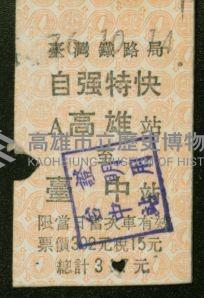 76.10.14
臺灣鐵路局
自强特快
A高雄站
至
臺中站
限當日當次車有效
票價302元稅15元
總計3 元
證明用
台中站
高雄市立歷史博物
KAOHSIUNG MUSEUM OF HISTORY